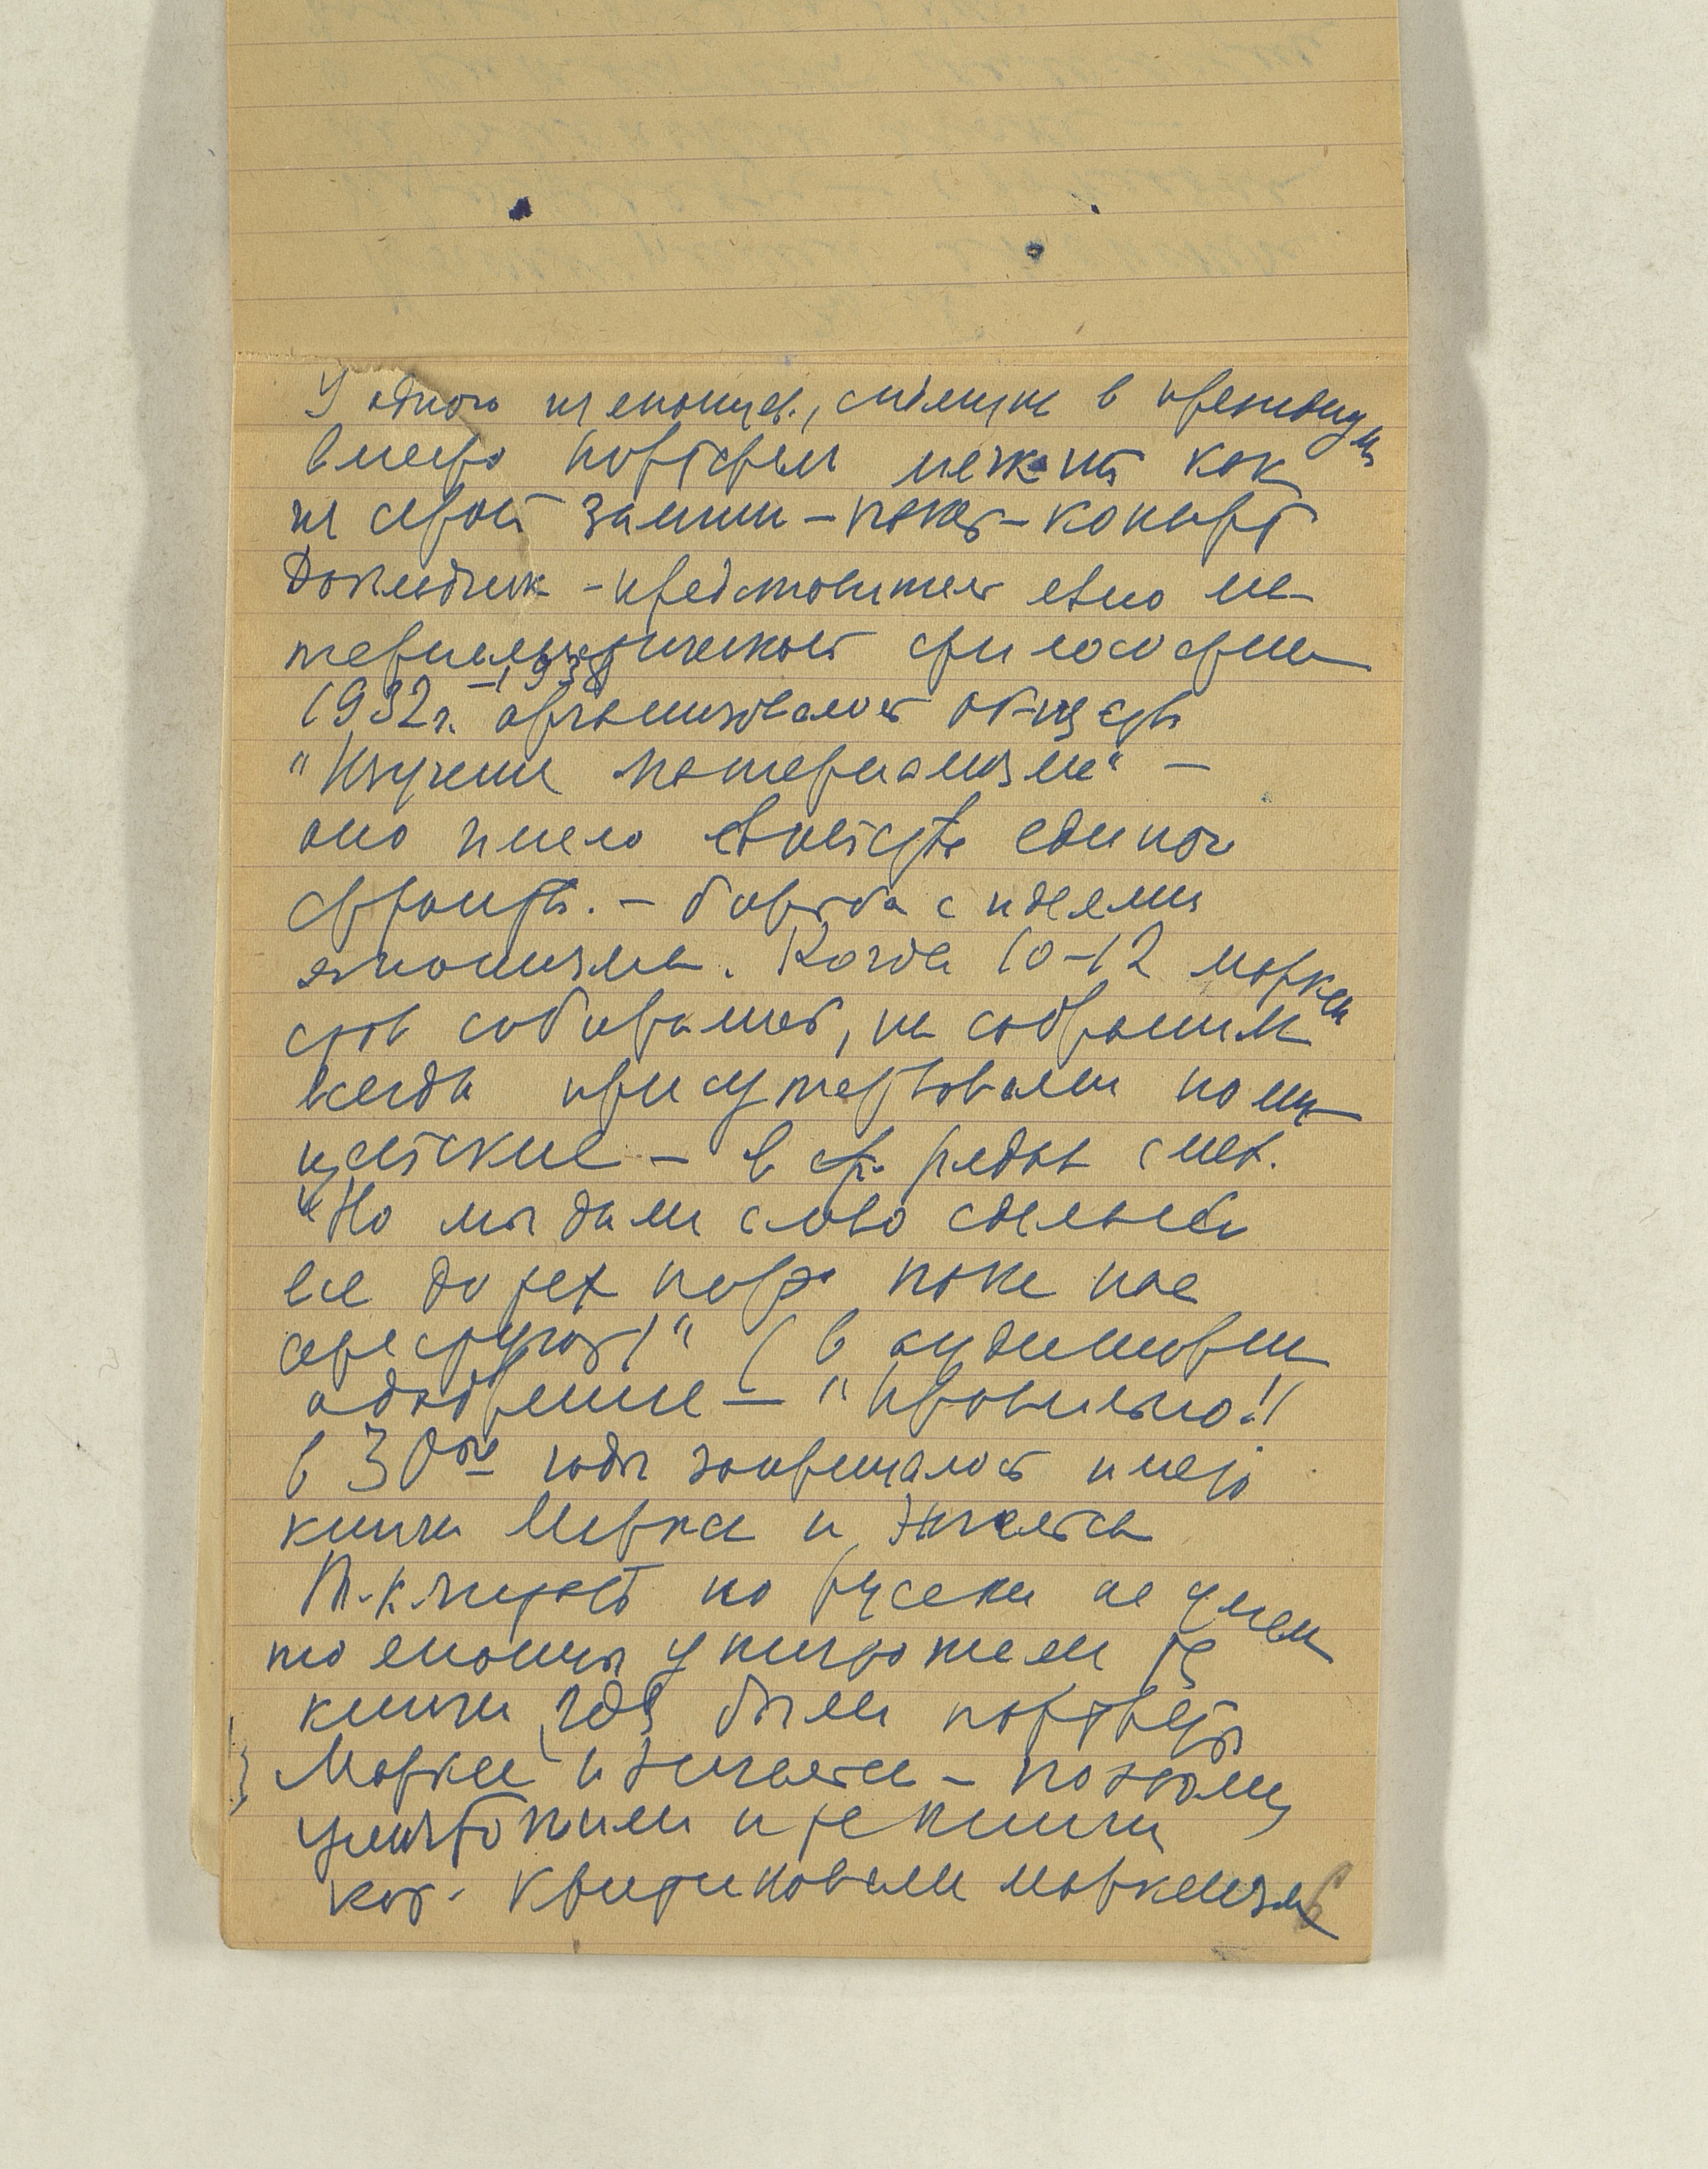 У одного из японцев, сидящих в президиуме
вместо портфеля лежит как
из серой замши – пакет – конверт
Докладчик – представитель евно ма-
териалистической философии
1932 г. – 1938 организовалось общество
"Изучение материализма" –
оно имело свойство единого
фронта. – борьба с идеями
японизма. Когда 10–12 маркси
стов собирались, на собраниях
всегда присутствовали поли
цейские – в рядах смех.
"Но мы дали слово сделать
все до тех пор пока нас
арестуют!" (в аудитории
одобрение – "правильно!)
в 30ые годы запрещалось иметь
книги Маркса и Энгельса
Т.к. читать по русски не умели
то японцы уничтожали те
книги, где были портреты
Маркса и Энгельса – поэтому
уничтожили и те книги
кот. критиковали марксизм